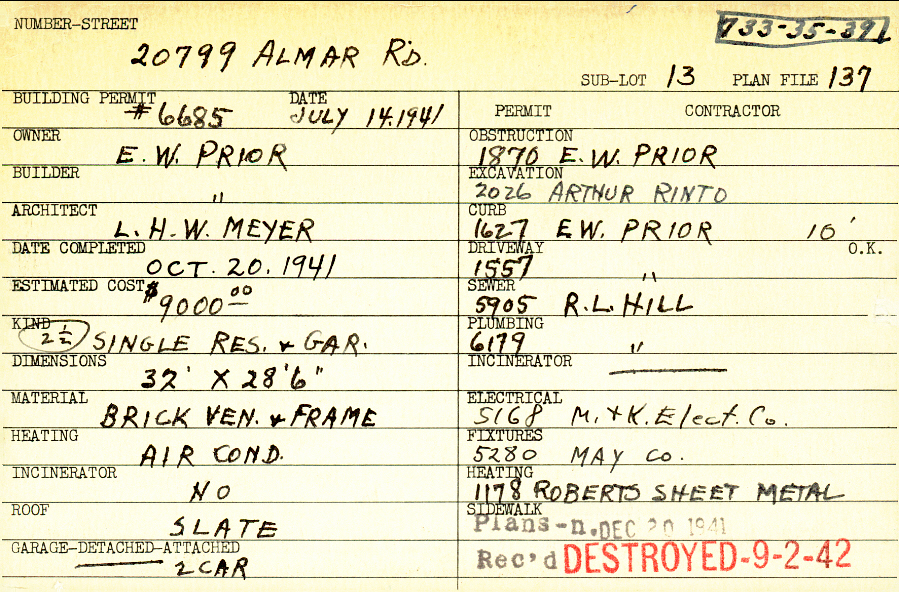 NUMBER-STREET
733-35-391
20799 ALMAR RD.
SUB-LOT 13 PLAN FILE 137
BUILDING PERMIT #6685 DATE JULY 14.1941
OWNER E.W. PRIOR
BUILDER "
ARCHITECT L.H.W. MEYER
DATE COMPLETED OCT. 20. 1941
ESTIMATED COST $9000.00
KIND 2 1/2 SINGLE RES. & GAR.
DIMENSIONS 32' X 28'6"
MATERIAL BRICK VEN. & FRAME
HEATING AIR COND.
INCINERATOR NO
ROOF SLATE
GARAGE-DETACHED-ATTACHED 2 CAR
PERMIT CONTRACTOR
OBSTRUCTION 1870 E.W. PRIOR
EXCAVATION 2026 ARTHUR RINTO
CURB 1627 E.W. PRIOR 10'
DRIVEWAY 1557 " O.K.
SEWER 5905 R.L. HILL
PLUMBING 6179 "
INCINERATOR
ELECTRICAL 5168 M. & K. Elect. Co.
FIXTURES 5280 MAY CO.
HEATING 1178 ROBERTS SHEET METAL
SIDEWALK
Plans-n. DEC 20 1941
Rec'd DESTROYED-9-2-42